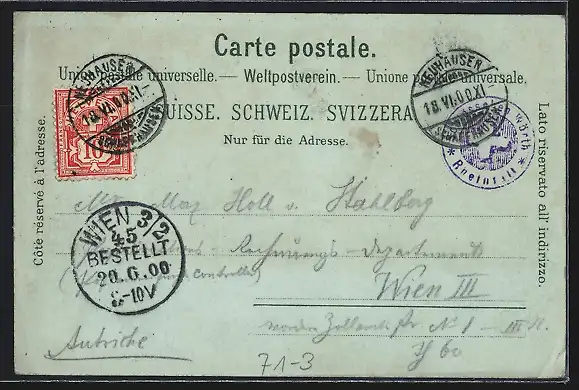 Carte postale.
Union postale universelle. — Weltpostverein. — Unione postale universale.
SUISSE. SCHWEIZ. SVIZZERA
Nur für die Adresse.
Côte réservé à l'adresse.
Lato riservato all' indirizzo.
NEUHAUSEN
18.VI.00.XI-
NEUHAUSEN
18.VI.00.XI-
Wörth
* Rheinfall *
WIEN 3/2
45
BESTELLT
20.6.00
8-10V
Max Holl v. Stahlberg
Rechnungs-Departement
Wien III
Zollamts Str. No 1 - III
Autriche
71-3